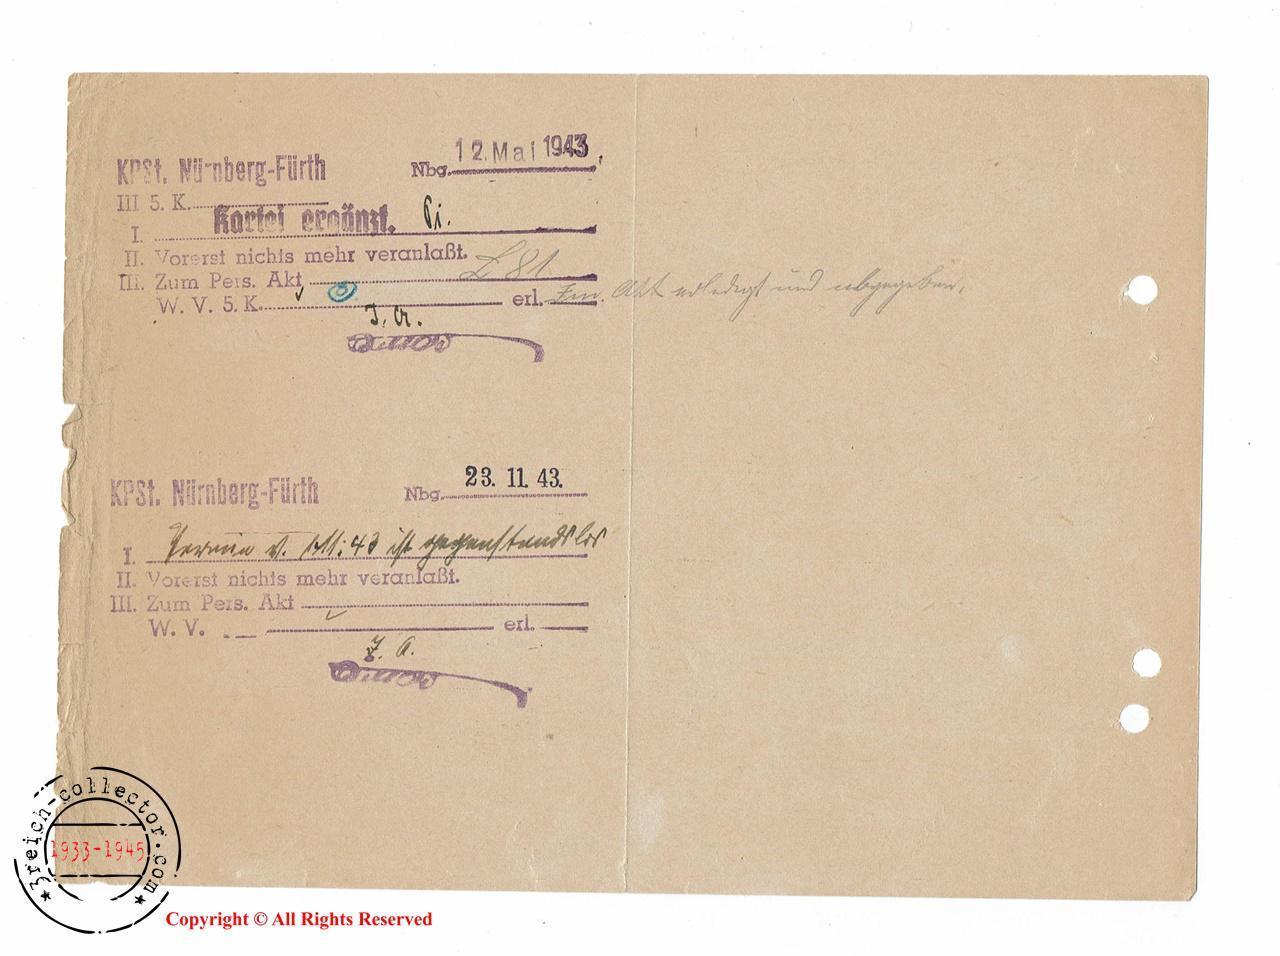 KPSt. Nürnberg-Fürth Nbg. 12. Mai 1943
III 5. K.
Kartei ergänzt.
I.
II. Vorerst nichts mehr veranlaßt.
III. Zum Pers. Akt
W. V. 5. K. erl. Im Akt erledigt und abgegeben.
I. A.
KPSt. Nürnberg-Fürth Nbg. 23. 11. 43.
I. Termin v. 43 ist gegenstandslos
II. Vorerst nichts mehr veranlaßt.
III. Zum Pers. Akt
W. V. erl.
I. A.
3reich-collector.com
1933-1945
Copyright © All Rights Reserved